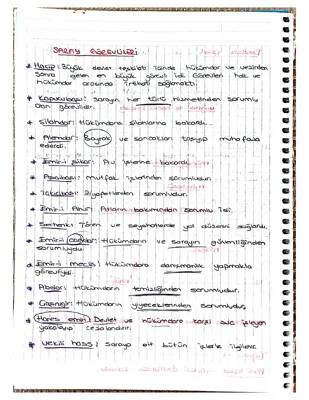 SARAY GÖREVLİLERİ
Hacip: Büyük devlet teşkilatı içinde hükümdar ve vezirden
sonra gelen en büyük görevli idi. Görevleri halk ve
hükümdar arasında irtibatı sağlamaktı.
Kapucubaşı: Sarayın her türlü hizmetinden sorumlu
olan görevlidir.
Silahdar: Hükümdarın silahlarına bakardı.
Alemdar: Bayrak ve sancakları taşıyıp muhafaza
ederdi.
Emir-i Şikar: Av işlerine bakardı.
Aşçıbaşı: Mutfak işlerinden sorumludur.
ziyafetlerden sorumludur.
Emir-i Ahur: Atların bakımından sorumlu idi.
Serhenk: Tören ve seyahatlerde yol düzeni sağlardı.
Emir-i candar: Hükümdarın ve sarayın güvenliğinden
sorumluydu.
Emir-i meclis: Hükümdara danışmanlık yapmakla
görevliydi.
Abdar: Hükümdarın temizliğinden sorumludur.
Çaşnigir: Hükümdarın yiyeceklerinden sorumludur.
Hares emiri: Devlet ve hükümdara karşı suç işleyen
yakalayıp cezalandırır.
Vekil-i hass: Saraya ait bütün işlerle ilgilenir.